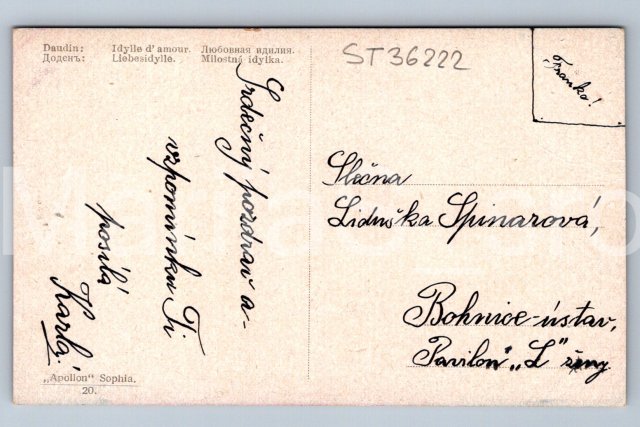 Daudin: Idylle d'amour. Любовная идилия.
Доденъ: Liebesidylle. Milostná idylka.
ST36222
„Franko!
Srdečný pozdrav a-
vzpomínku Ti
posílá
Karla.
Slečna
Liduška Spinarová,
Bohnice-ústav,
Pavilon „L" ženy
„Apollon" Sophia.
20.